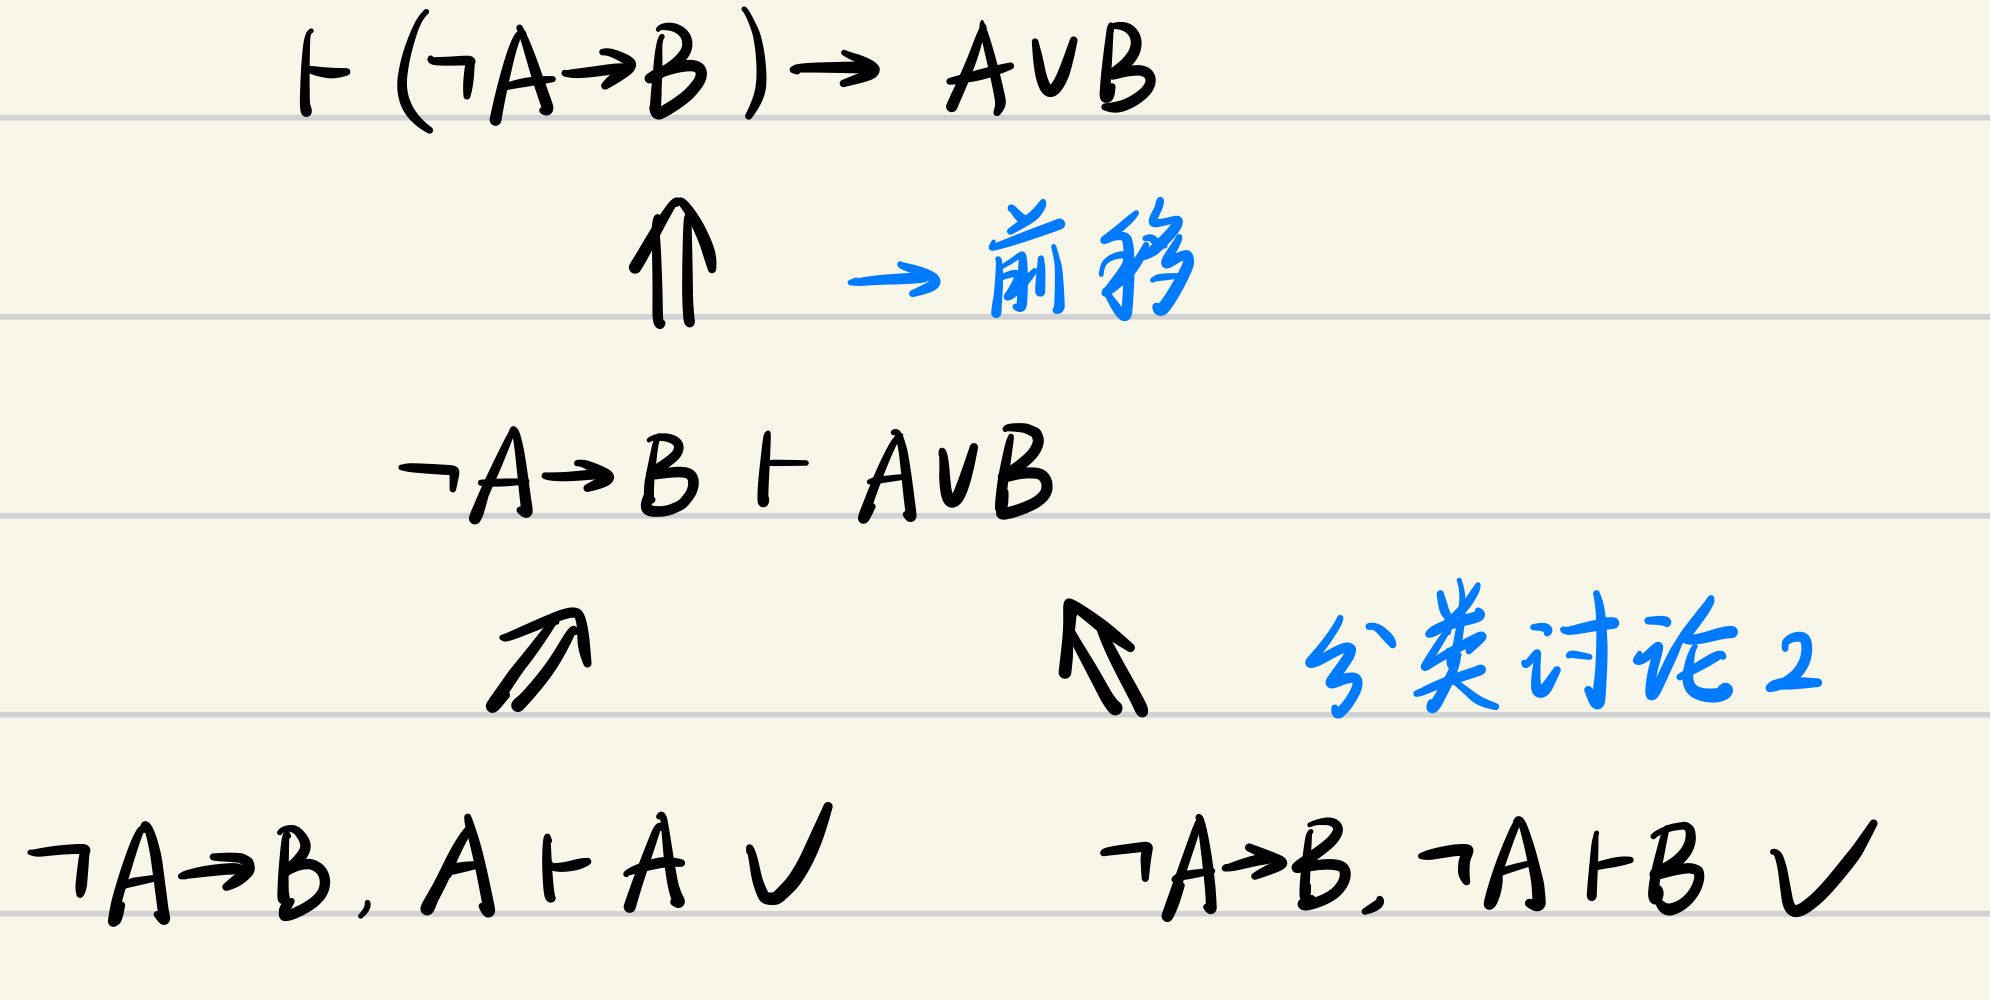 ⊢ (¬A→B) → A∨B
→ 前移
¬A→B ⊢ A∨B
分类讨论 2
¬A→B, A ⊢ A ✓ ¬A→B, ¬A ⊢ B ✓